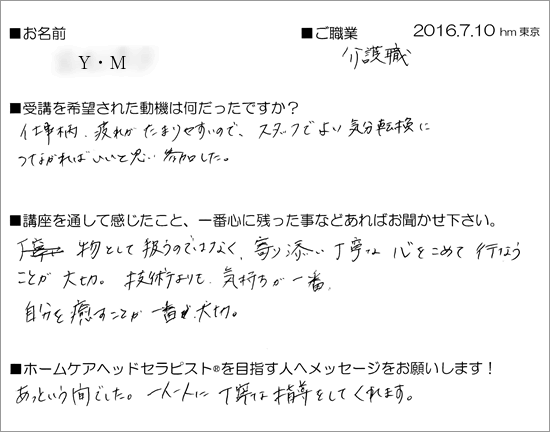 ■お名前 ■ご職業 2016.7.10 hm東京
Y・M 介護職
■受講を希望された動機は何だったですか？
仕事柄、疲れがたまりやすいので、スタッフでよい気分転換に
つながればいいと思い参加した。
■講座を通して感じたこと、一番心に残った事などあればお聞かせ下さい。
物として扱うのではなく、寄り添い丁寧な心をこめて行なう
ことが大切。技術よりも、気持ちが一番、
自分を癒すことが一番大切。
■ホームケアヘッドセラピスト®を目指す人へメッセージをお願いします！
あっという間でした。一人一人に丁寧な指導をしてくれます。